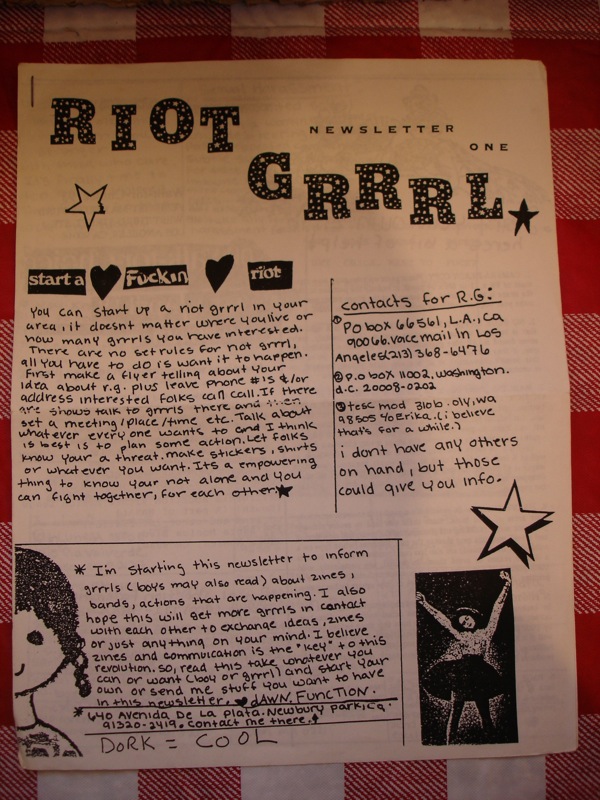 RIOT
NEWSLETTER
ONE
GRRRL
start a Fuckin riot
You can start up a riot grrrl in your
area, it doesnt matter where you live or
how many grrrls you have interested.
There are no set rules for riot grrrl,
all you have to do is want it to happen.
First make a flyer telling about your
idea about r.g. plus leave phone #'s &/or
address interested folks can call. If there
are shows talk to grrrls there and then
set a meeting/place/time etc. Talk about
whatever every one wants to and I think
is best is to plan some action. Let folks
know your a threat. make stickers, shirts
or whatever you want. Its a empowering
thing to know your not alone and you
can fight together, for each other
contacts for R.G:
① PO box 66561, L.A., CA
90066. Voice mail in Los
Angeles (213) 368-6476
② P.o box 11002, Washington.
d.c. 20008-0202
③ tesc mod 310b. oly, wa
98505 % Erika. (i believe
that's for a while.)
i dont have any others
on hand, but those
could give you info.
* I'm starting this newsletter to inform
grrrls (boys may also read) about zines,
bands, actions that are happening. I also
hope this will get more grrrls in contact
with each other to exchange ideas, zines
or just anything on your mind. I believe
zines and commuication is the "key" to this
revolution. So, read this take whatever you
can or want (boy or grrrl) and start your
own or send me stuff you want to have
in this newsletter. ♥ dAWN. FUNCTION.
* 640 Avenida De La Plata. Newbury park, Ca.
91320-2419. Contact me there.
DORK = COOL